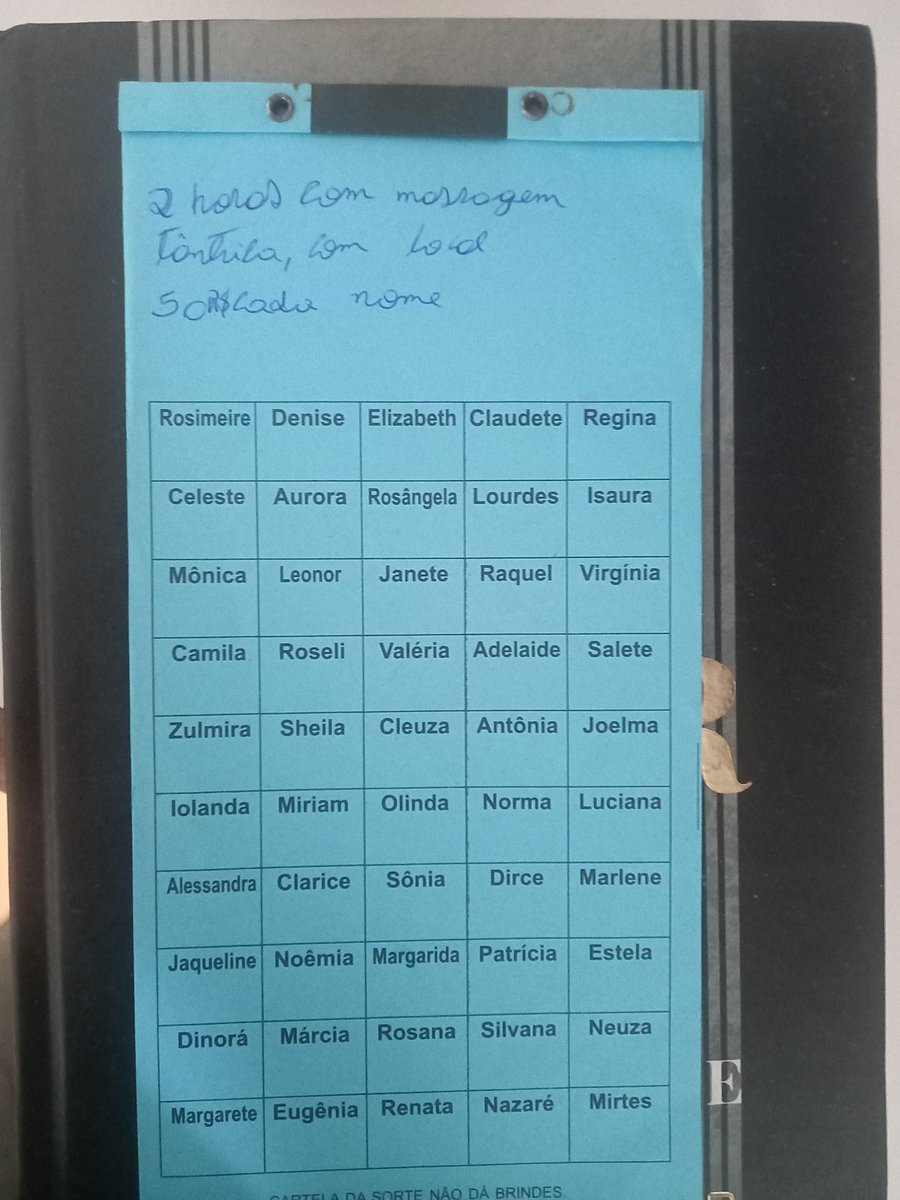 2 horas com massagem
tântrica, com local
50R$ cada nome
Rosimeire Denise Elizabeth Claudete Regina
Celeste Aurora Rosângela Lourdes Isaura
Mônica Leonor Janete Raquel Virgínia
Camila Roseli Valéria Adelaide Salete
Zulmira Sheila Cleuza Antônia Joelma
Iolanda Miriam Olinda Norma Luciana
Alessandra Clarice Sônia Dirce Marlene
Jaqueline Noêmia Margarida Patrícia Estela
Dinorá Márcia Rosana Silvana Neuza
Margarete Eugênia Renata Nazaré Mirtes
CARTELA DA SORTE NÃO DÁ BRINDES
R
E